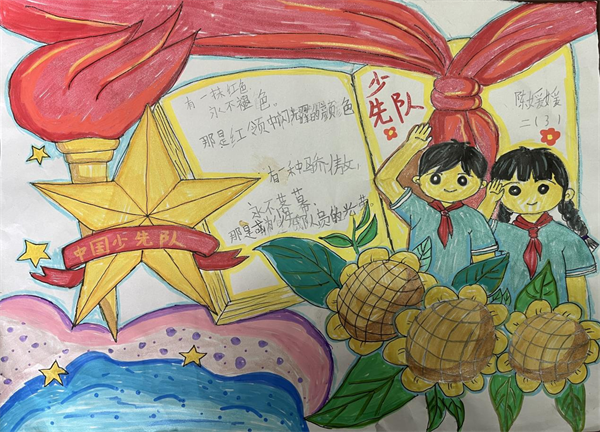 少
先队
陈媛媛
二(3)
有一抹红色
永不褪色。
那是红领巾闪耀的颜色
有一种骄
永不落幕
那是成为少先队员的光荣
中国少先队